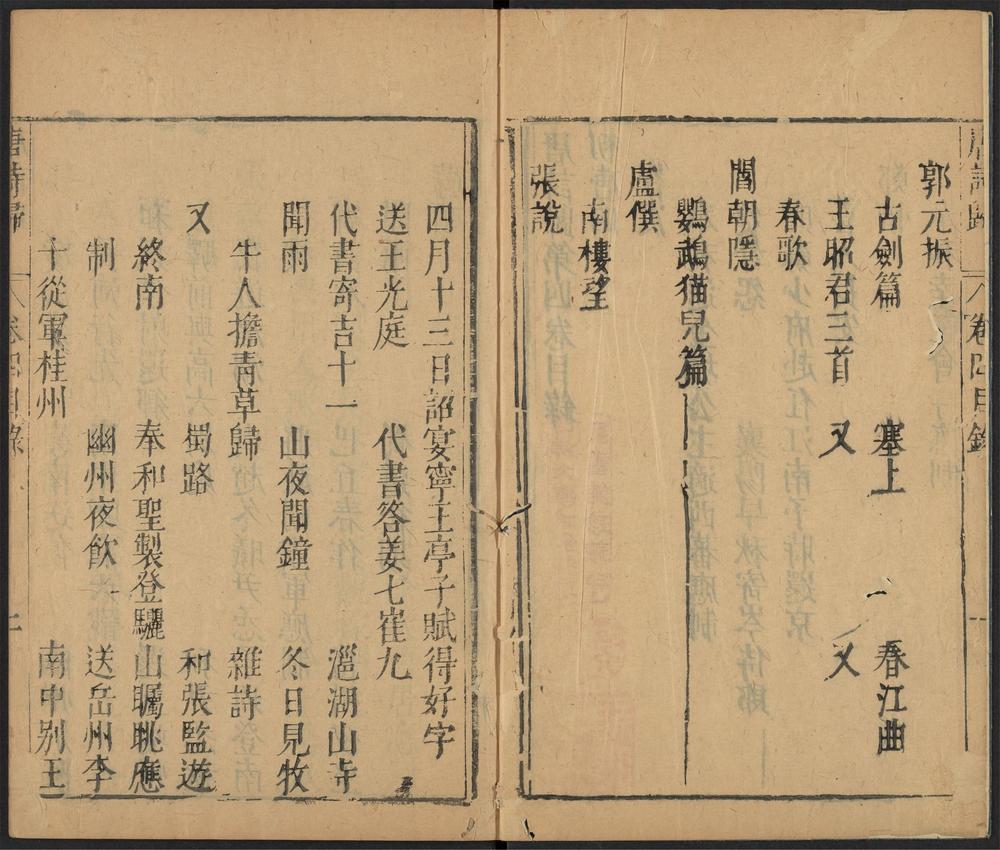 郭元振
古劍篇 塞上 春江曲
王昭君三首 又 又
春歌
閻朝隱
鸚鵡猫兒篇
盧僎
南樓望
張說
四月十三日詔宴寧王亭子賦得好字
送王光庭 代書答姜七崔九
代書寄吉十一 㴩湖山寺
聞雨 山夜聞鐘 冬日見牧
牛人擔青草歸 雜詩
又 蜀路 和張監遊
終南 奉和聖製登驪山矚眺應
制 幽州夜飲 送岳州李
十從軍桂州 南中别王
唐詩歸 卷四目錄 二